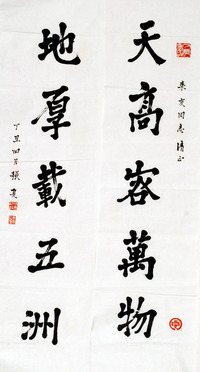 天高容萬物
地厚載五洲
同志清正
丁丑四月